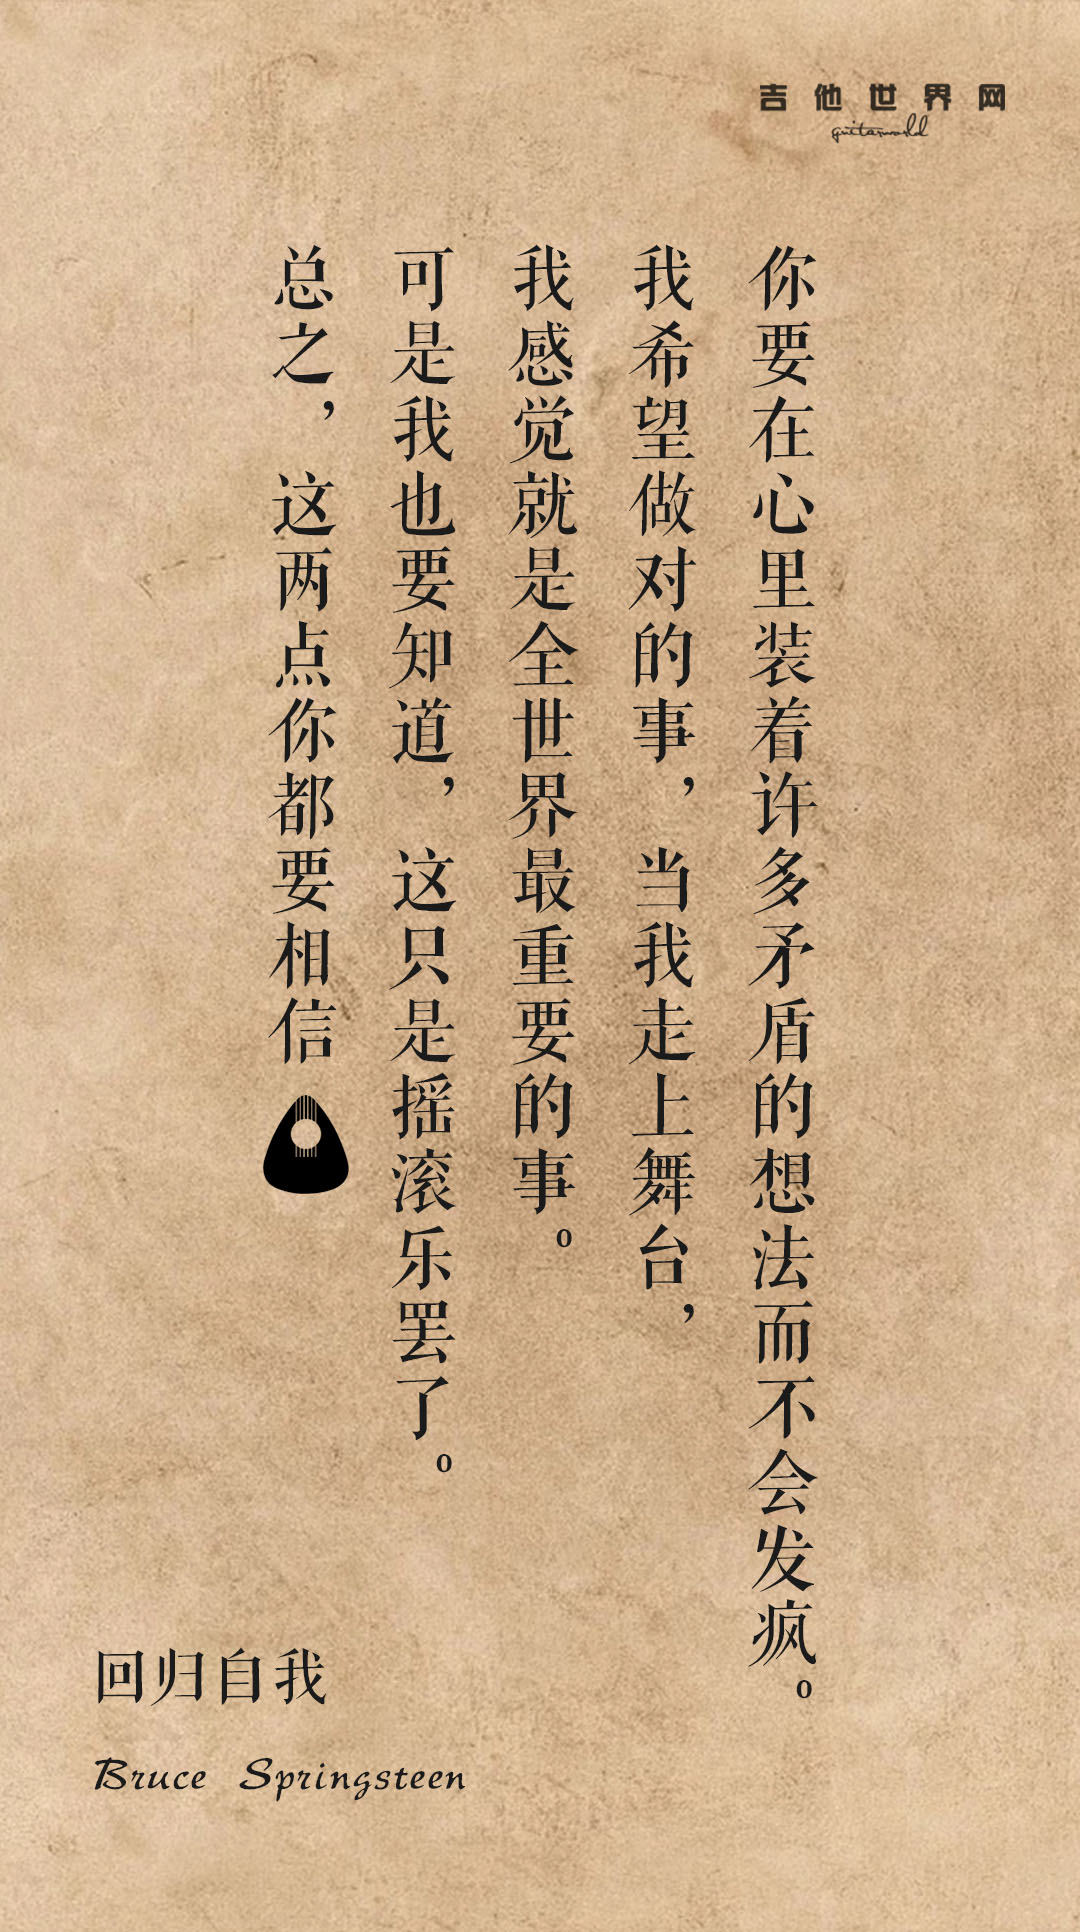 吉他世界网
guitarworld
你要在心里装着许多矛盾的想法而不会发疯。
我希望做对的事，当我走上舞台，
我感觉就是全世界最重要的事。
可是我也要知道，这只是摇滚乐罢了。
总之，这两点你都要相信
回归自我
Bruce Springsteen